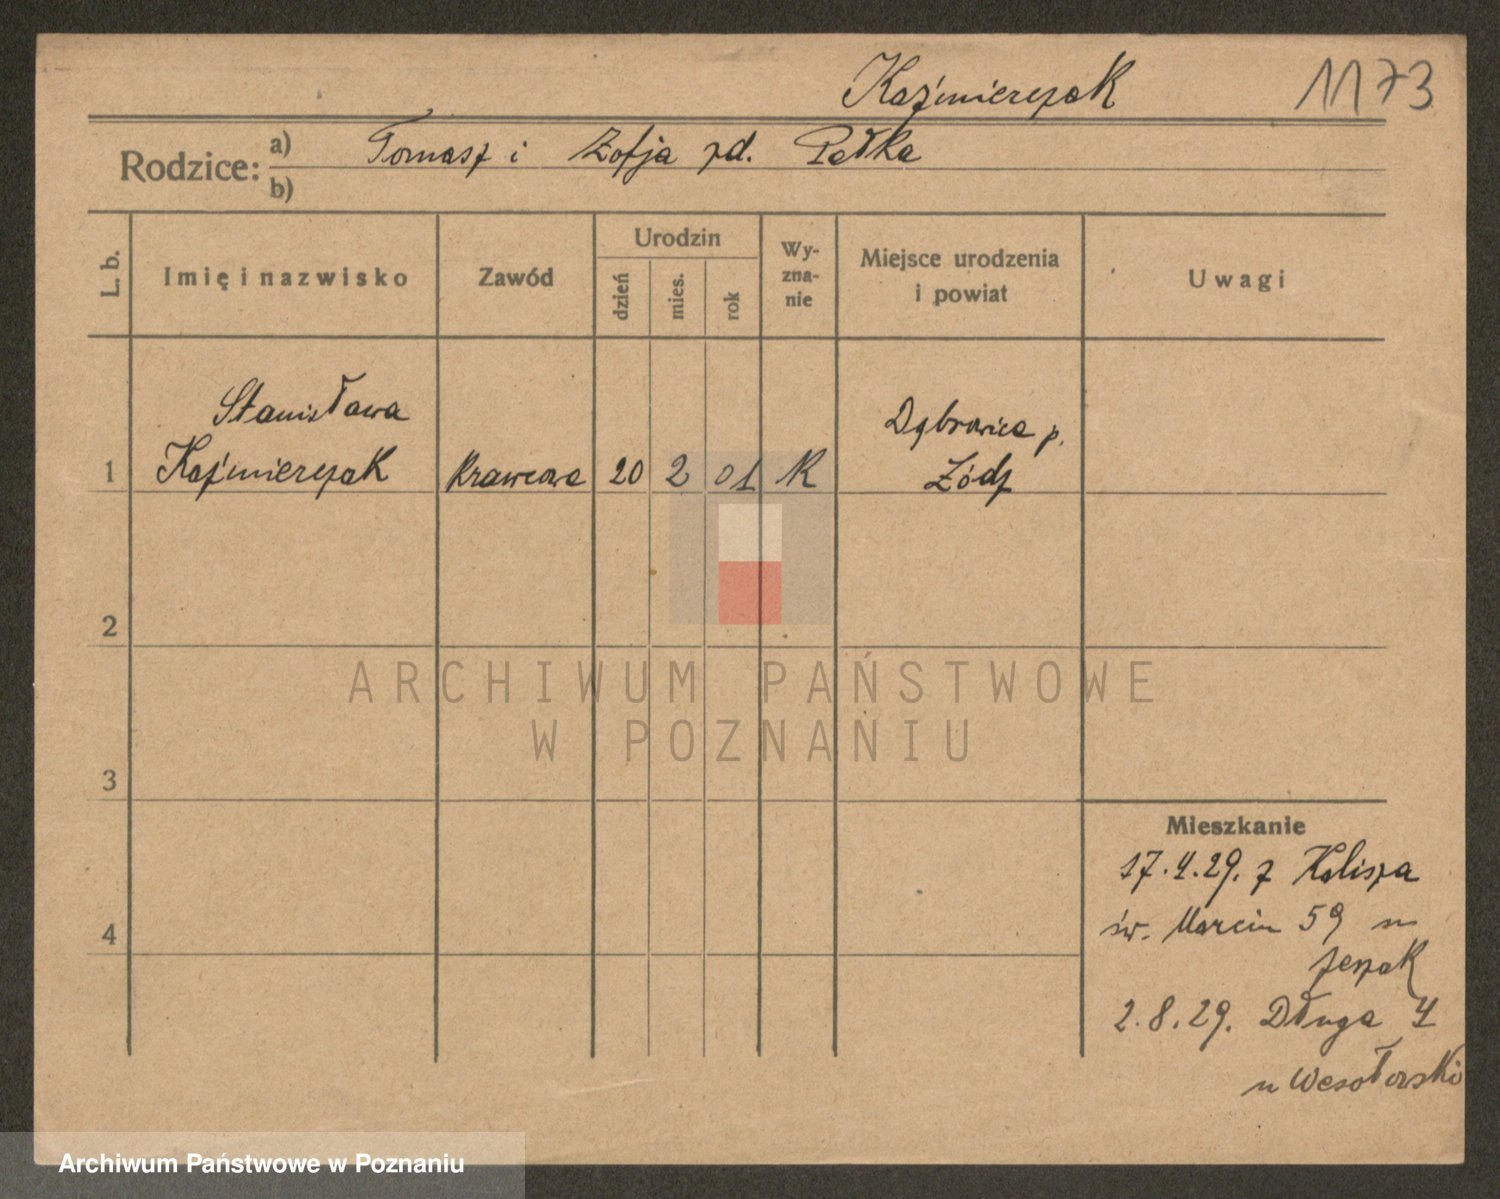 Kaźmierczak 1173
Rodzice: a) Tomasz i Zofja zd. Pełka
b)
L. b. Imię i nazwisko Zawód Urodzin dzień mies. rok Wy-zna-nie Miejsce urodzenia i powiat Uwagi
Stanisława Dąbrowice p.
1 Kaźmierczak Krawcowa 20 2 01 K Łódz
2
ARCHIWUM PAŃSTWOWE
W POZNANIU
3
Mieszkanie
17.4.29. z Kalisza
św. Marcin 59 u
4
2.8.29. Długa 4
u Wesołowski
Archiwum Państwowe w Poznaniu